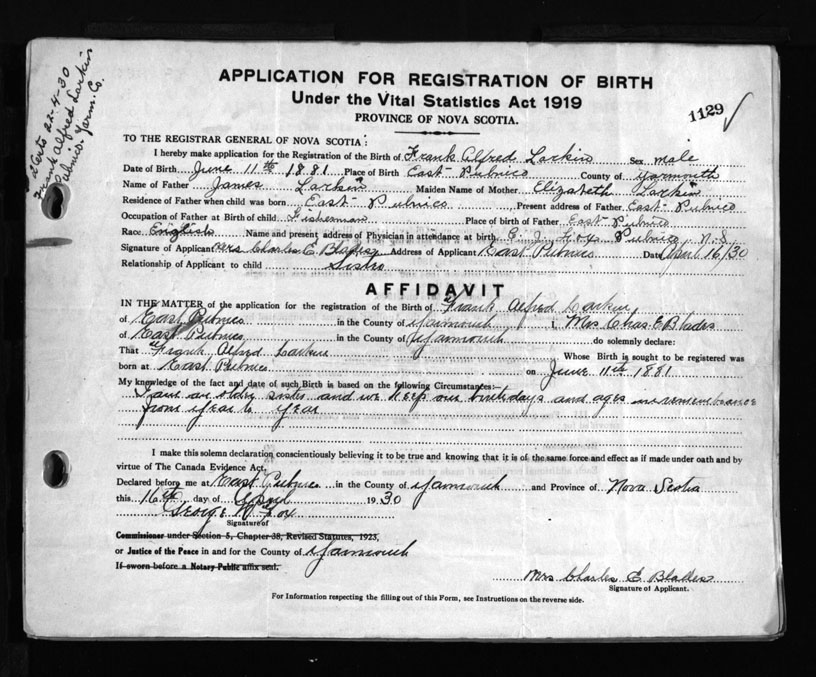 2 Certs 22-4-30
Frank Alfred Larkin
Pubnico. Yarm. Co.
APPLICATION FOR REGISTRATION OF BIRTH
Under the Vital Statistics Act 1919
PROVINCE OF NOVA SCOTIA.
1129
TO THE REGISTRAR GENERAL OF NOVA SCOTIA:
I hereby make application for the Registration of the Birth of Frank Alfred Larkin Sex male
Date of Birth June 11th 1881 Place of Birth East-Pubnico County of Yarmouth
Name of Father James Larkin Maiden Name of Mother Elizabeth Larkin
Residence of Father when child was born East-Pubnico Present address of Father East-Pubnico
Occupation of Father at Birth of child Fisherman Place of birth of Father East-Pubnico
Race English Name and present address of Physician in attendance at birth Pubnico N.S
Signature of Applicant Mrs Charles E. Blades Address of Applicant East Pubnico Date April 16/30
Relationship of Applicant to child Sister
AFFIDAVIT
IN THE MATTER of the application for the registration of the Birth of Frank Alfred Larkin
of East Pubnico in the County of Yarmouth I, Mrs Chas E Blades
of East Pubnico in the County of Yarmouth do solemnly declare:
That Frank Alfred Larkin Whose Birth is sought to be registered was
born at East Pubnico on June 11th 1881
My knowledge of the fact and date of such Birth is based on the following Circumstances:—
I am an older sister and we keep our birthdays and ages in remembrance
from year to year
I make this solemn declaration conscientiously believing it to be true and knowing that it is of the same force and effect as if made under oath and by
virtue of The Canada Evidence Act.
Declared before me at East Pubnico in the County of Yarmouth and Province of Nova Scotia
this 16th day of April 1930
George W Fox
Signature of
Commissioner under Section 5, Chapter 38, Revised Statutes, 1923,
or Justice of the Peace in and for the County of Yarmouth
If sworn before a Notary Public affix seal.
Mrs Charles E Blades
Signature of Applicant.
For Information respecting the filling out of this Form, see Instructions on the reverse side.